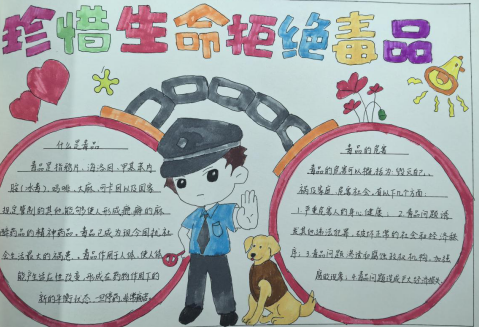 珍惜生命拒绝毒品
什么是毒品
毒品是指鸦片、海洛因、甲基苯丙
胺(冰毒)、吗啡、大麻、可卡因以及国家
规定管制的其他能够使人形成瘾癖的麻
醉药品和精神药品。毒品已成为现今困扰社
会生活最大的祸患。毒品作用于人体，使人体
能产生适应性改变，形成在药物作用下的
新的平衡状态。一旦停药
毒品的危害
毒品的危害可以概括为"毁灭自己、
祸及家庭、危害社会。有以下几个方面：
1.严重危害人的身心健康；2.毒品问题诱
发其他违法犯罪，破坏正常的社会和经济秩
序；3.毒品问题渗透和腐蚀政权机构，加剧
腐败现象；4.毒品问题造成巨大经济损失。